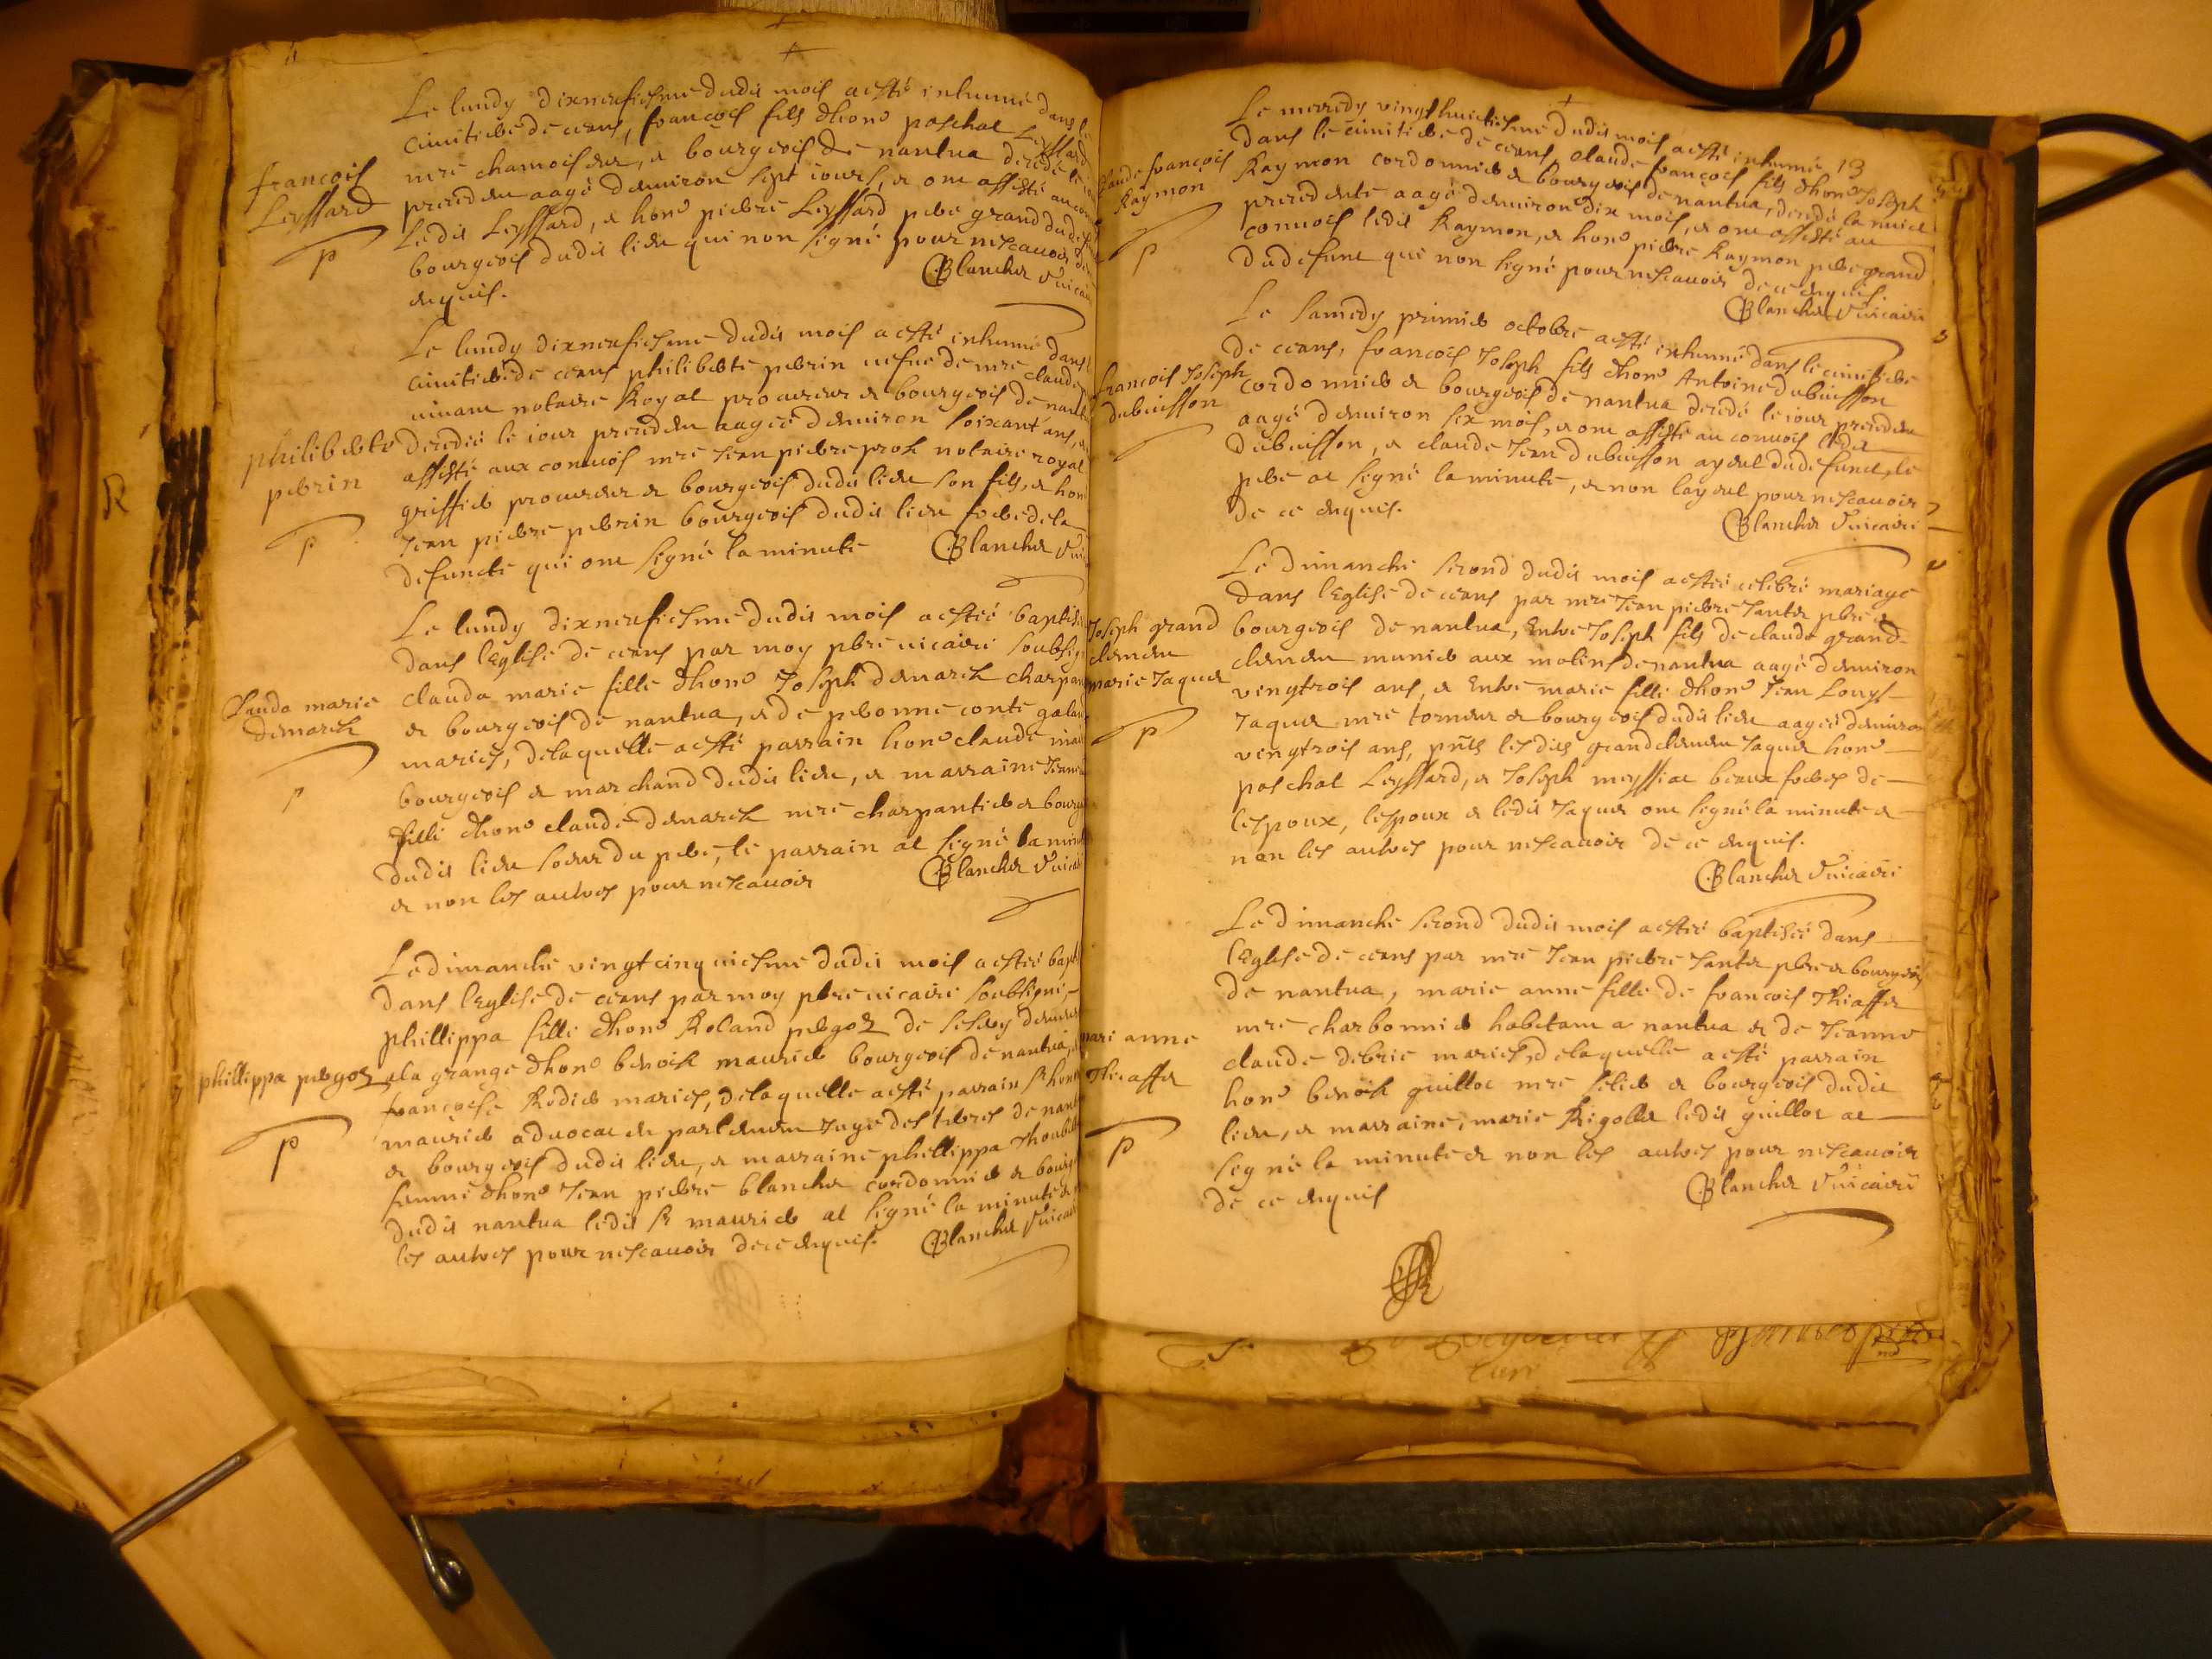 Le lundy dixneufiesme dudit mois a esté inhumé dans le
cimitiere de ceans, francois fils dhono paschal Leyssard
mre chamoiseur, et bourgeois de nantua decedé le
francois
Leyssard
precedem aagé demviron sept iours, et om assisté au
Ledit Leyssard, et hono pierre Leyssard pere grand du
bourgeois dudit lieu qui non signé pour nescauoir de
enquis.
Blanchet Vuicaire
P
Le lundy dixneufiesme dudit mois a esté inhumé dans
cimitierede ceans philiberte perrin uefue de mre claude
uiuam notaire Royal procureur et bourgeois de
philiberte
perrin
decedée le iour precedem aagée demviron soixant ans,
assisté aux conuois mre Jean pierre prost notaire royal
griffier procureur et bourgeois dudit lieu son fils, et hono
Jean pierre perrin bourgeois dudit lieu frere de la
defuncte qui om signé la minute Blanchet
P
Le lundy dixneufiesme dudit mois a estée
dans l'Eglise de ceans par moy pbre uicaire
Clauda marie
demarest
clauda marie fille dhono Joseph demarest
et bourgeois de nantua, et de peronne conte
mariés, delaquelle a esté parrain hono claude
bourgeois et marchand dudit lieu, et marraine
fille dhono claude demarest mre charpantier et
dudit lieu soeur du pere, le parrain at signé la
et non les autres pour nescauoir Blanchet
P
Le dimanche vingtcinquiesme dudit mois a estée
dans l'Eglise de ceans par moy pbre uicaire soubsigné
phillippa fille dhono Roland pergoz de
phillippa pergoz
a la grange dhono benoist maurier bourgeois de nantua,
francoise Rodier mariés, delaquelle a esté parrain Sr
maurier aduocat en parlement Juge des terres de
et bourgeois dudit lieu, et marraine phillippa
femme dhono Jean pierre blanchet cordonnier et
dudit nantua ledit Sr maurier at signé la minute et
les autres pour nescauoir de ce enquis. Blanchet
P
13
Le mecredy vingthuictiesme dudit mois a esté inhumé
dans le cimitiere de ceans, claude francois fils dhono Joseph
claude francois
Raymon
Raymon cordonnier et bourgeois de nantua, decedé la nuict
precedente aagé demviron dix mois, et om assisté au
conuois ledit Raymon, et hono pierre Raymon pere grand
du defunc qui non signé pour nescauoir de ce enquis.
Blanchet Vuicaire
P
Le samedy primier octobre a esté inhumé dans le cimitiere
de ceans, francois Joseph fils dhono Antoine dubuisson
francois Joseph
dubuisson
cordonnier et bourgeois de nantua decedé le iour precedem
aagé demviron six mois, et om assisté au conuois ledit
dubuisson, et claude Jean dubuisson ayeul du defunct, le
pere at signé la minute, et non layeul pour nescauoir
de ce enquis.
Blanchet Vuicaire
Le dimanche second dudit mois a esté celebré mariage
dans l'Eglise de ceans par mre Jean pierre Jantet pbre et
Joseph grand
clement
marie Jaquet
bourgeois de nantua, Entre Joseph fils de claude grand
clement munier aux molins de nantua aagé demviron
vingtrois ans, et Entre marie fille dhono Jean Louys
Jaquet mre torneur et bourgeois dudit lieu aagée demviron
vingtrois ans, pnts lesdits grandclement Jaquet hono
paschal Leyssard, et Joseph meyssiat beaux freres de
lespoux, lespoux et ledit Jaquet om signé la minute et
non les autres pour nescauoir de ce enquis.
Blanchet Vuicaire
P
Le dimanche second dudit mois a estée baptisée dans
l'Eglise de ceans par mre Jean pierre Jantet pbre et bourgeois
de nantua, marie anne fille de francois Thiaffet
mari anne
Thiaffet
mre charbonnier habitam a nantua et de Jeanne
claude debrie mariés, delaquelle a esté parrain
hono benoist guillot mre selier et bourgeois dudit
lieu, et marraine, marie Rigollet ledit guillot at
signé la minute et non les autres pour nescauoir
de ce enquis
Blanchet Vuicaire
P